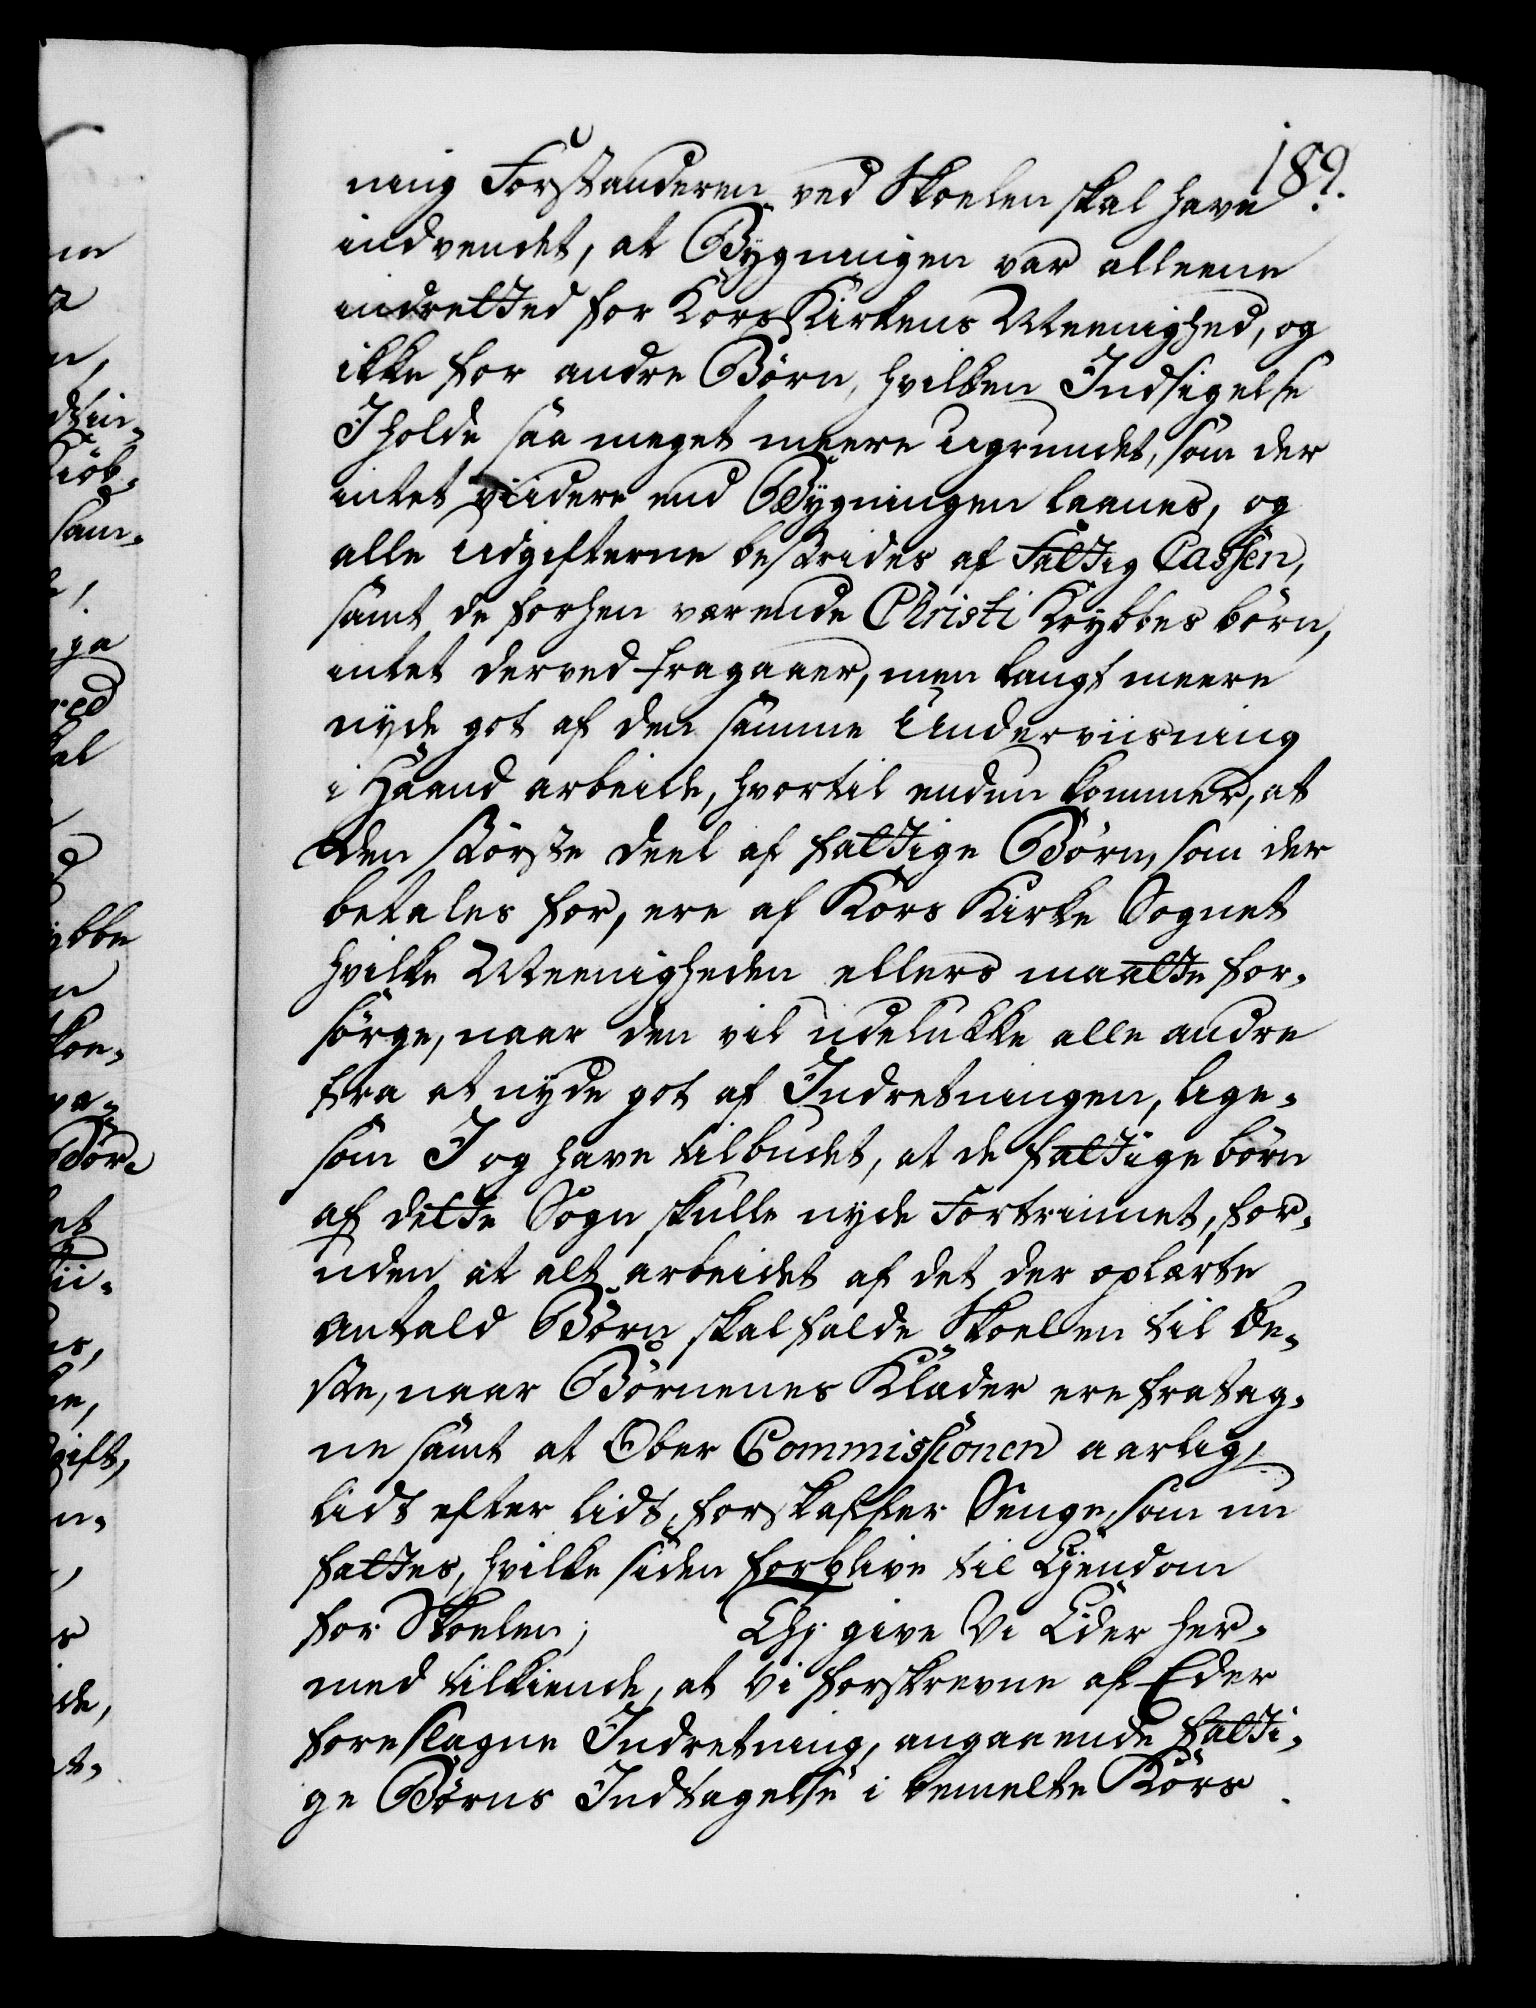 189.
ning Forstanderen ved Skoelen skal have
indvendt, at Bygningen var alleene
indretted for Kors Kirkens Meenighed, og
ikke for andre Börn, hvilken Indsigelse
I holde saa meget meere ugrundet, som der
intet viidere end Bygningen laanes, og
alle Udgifterne bestrides af Fattig Cassen,
samt de forhen værende Christi Krybbes börn,
intet derved fragaaer, men langt meere
nyde got af den samme Underviisning
i Haand arbeide, hvortil enden kommer, at
den störste deel af fattige Börn, som der
betales for, ere af Kors Kirke Sognet
hvilke Meenigheden ellers maatte for-
sörge, naar den vil udelukke alle andre
fra at nyde got af Indretningen, lige-
som I og have tilbudet, at de fattige börn
af dette Sogn skulle nyde Fortrinnet, for-
uden at alt arbeidet af det der oplærte
Antald Börn skal falde Skoelen til be-
ste, naar Börnenes Klæder ere fratag-
ne samt at Ober Commissionen aarlig,
lidt efter lidt, forskaffer Senge, som nu
fattes, hvilke siden forblive til Ejendom
for Skoelen; Thj give Vi Eder her-
med tilkiende, at Vi forskrevne af Eder
foreslagne Indretning, angaaende fatti-
ge Börns Indtagelse i bemelte Kors